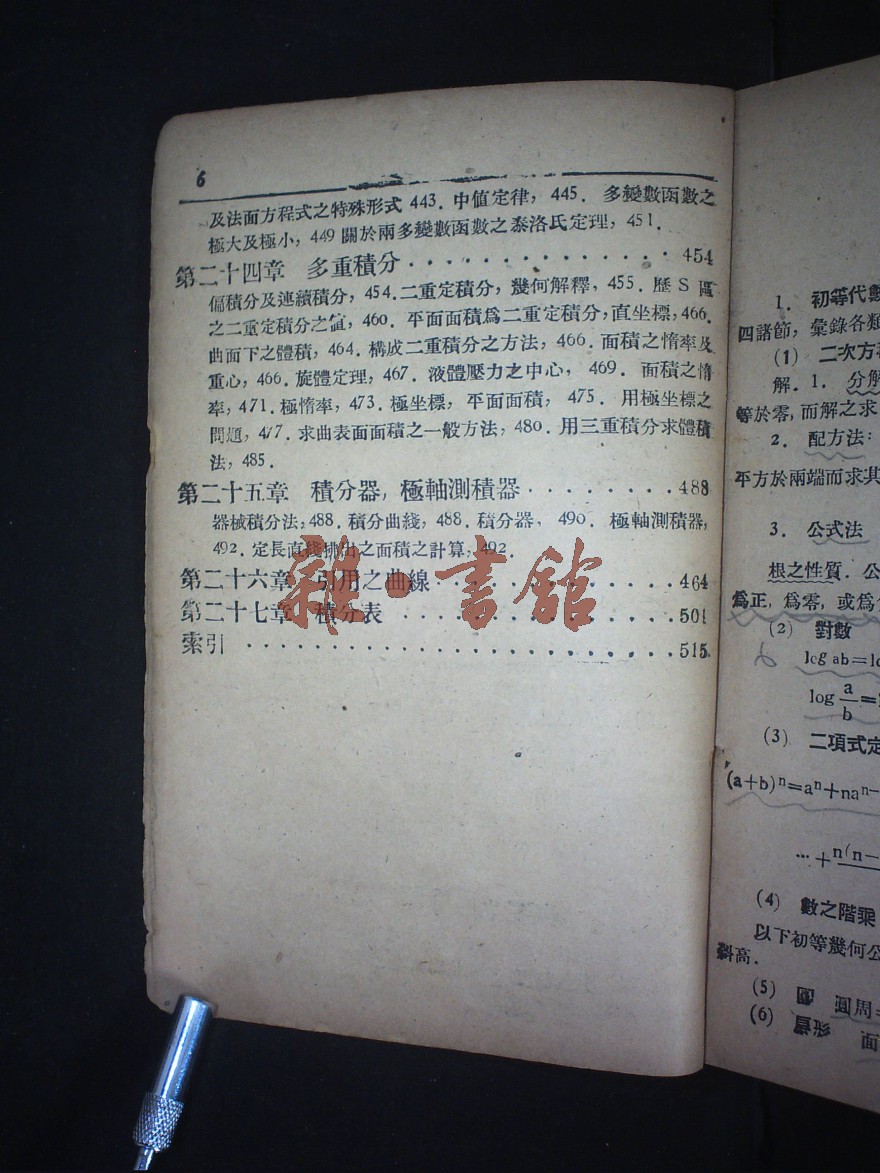 6
及法面方程式之特殊形式 443．中值定律，445．多變數函數之
極大及極小，449 關於兩多變數函數之泰洛氏定理，451．
第二十四章 多重積分 · · · · · · · · · · · · · 454
偏積分及連續積分，454．二重定積分，幾何解釋，455．歷 S 區
之二重定積分之值，460．平面面積爲二重定積分，直坐標，466．
曲面下之體積，464．構成二重積分之方法，466．面積之惰率及
重心，466．旋體定理，467．液體壓力之中心，469．面積之惰
率，471．極惰率，473．極坐標，平面面積，475．用極坐標之
問題，477．求曲表面面積之一般方法，480．用三重積分求體積
法，485．
第二十五章 積分器，極軸測積器 · · · · · · · · 488
器械積分法，488．積分曲綫，488．積分器，490．極軸測積器，
492．定長直綫排出之面積之計算，492．
第二十六章 引用之曲線 · · · · · · · · · · · 464
第二十七章 積分表 · · · · · · · · · · · · · 501
索引 · · · · · · · · · · · · · · · · · · · · 515
雜·書館
1． 初等代數
四諸節，彙錄各類
(1) 二次方
解．1． 分解
等於零，而解之求
2． 配方法：
平方於兩端而求其
3． 公式法
根之性質．公
爲正，爲零，或爲
(2) 對數
log ab=lo
log a/b =
(3) 二項式定
(a+b)ⁿ=aⁿ+naⁿ⁻
…+n(n−
(4) 數之階乘
以下初等幾何公
斜高．
(5) 圓周=
(6)
面